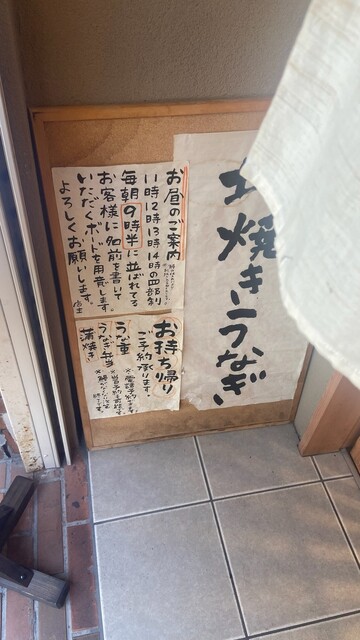 焼きうなぎ
お昼のご案内
11時12時13時14時の四部制
毎朝9時半に並ばれてる
お客様に名前を書いて
いただくボードを用意します。
よろしくお願いします。
店主
お持ち帰り
ご予約承ります。
うな重
うなぎ弁当
蒲焼き